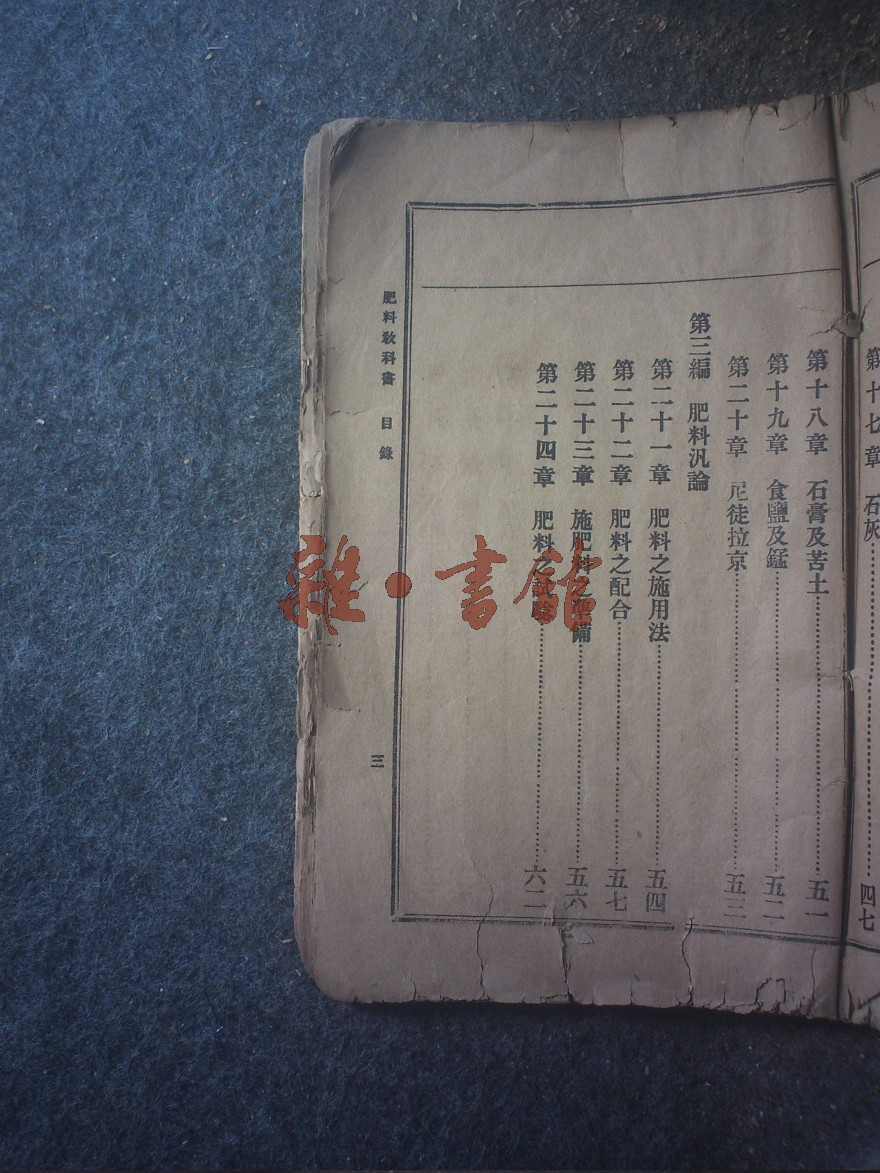 第十七章 石灰……四七
第十八章 石膏及苦土……五一
第十九章 食鹽及錳……五二
第二十章 尼徒拉京……五三
第三編 肥料汎論
第二十一章 肥料之施用法……五四
第二十二章 肥料之配合……五七
第二十三章 施肥料之準備……五六
第二十四章 肥料之試驗……六二
肥料教科書 目錄 三
雜·書館